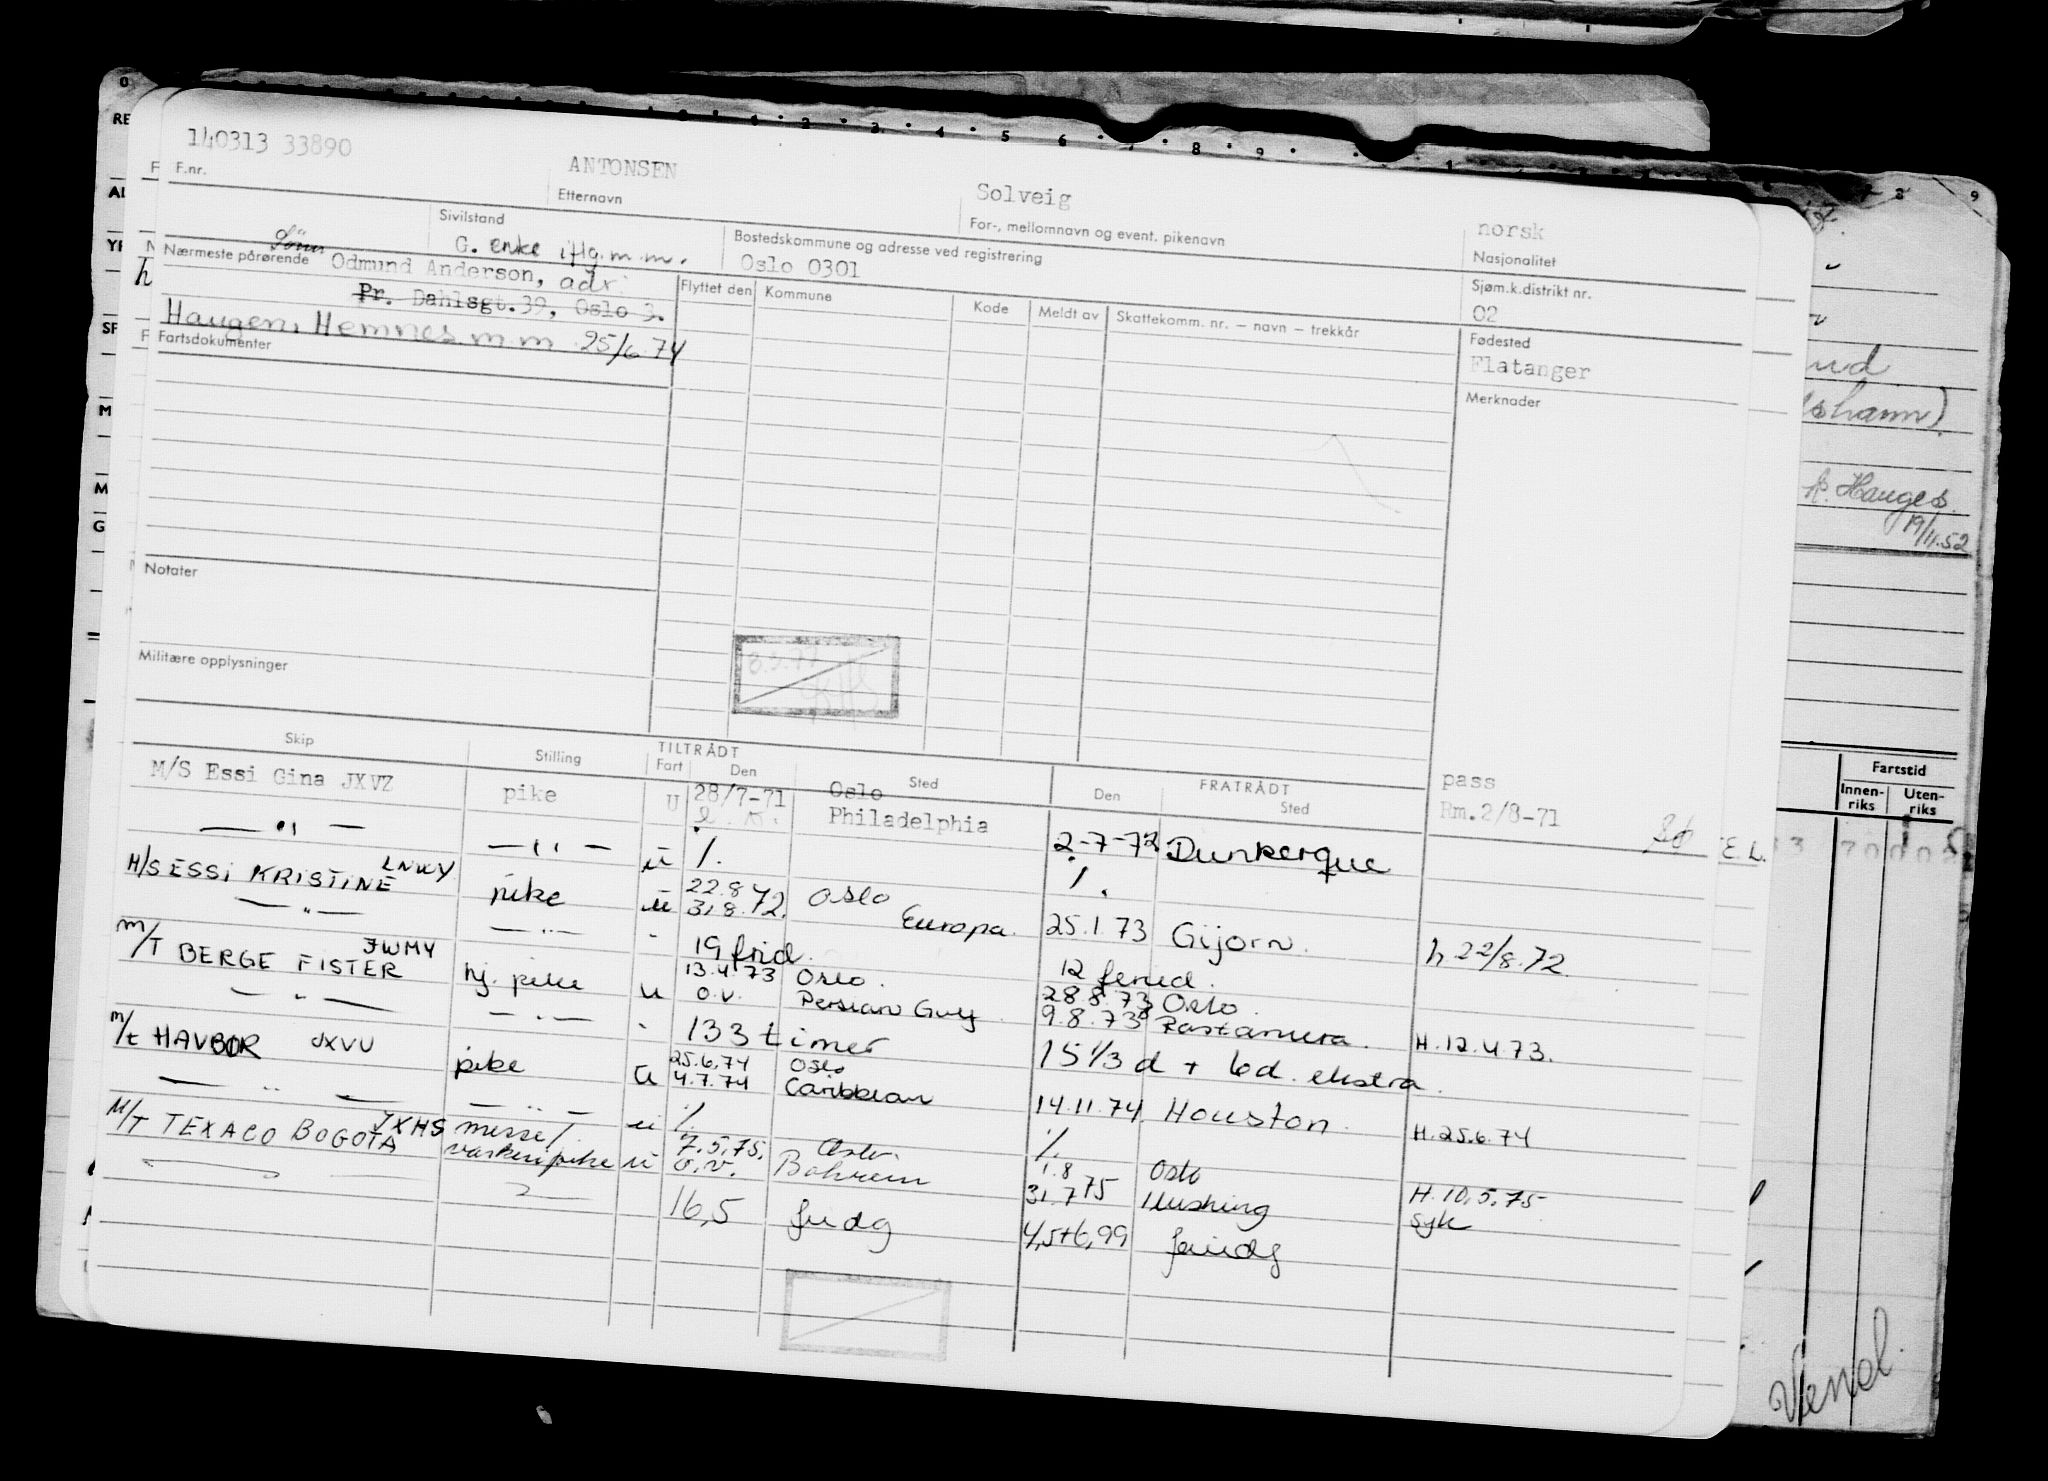 140313 33890
F.nr.
ANTONSEN
Etternavn
Solveig
For-, mellomnavn og event. pikenavn
norsk
Nasjonalitet
Sivilstand
G. enke iflg. m.m.
Bostedskommune og adresse ved registrering
Oslo 0301
Sjøm.k.distrikt nr.
02
Sønn
Nærmeste pårørende Odmund Anderson, adr.
Pr. Dahlsgt.39, Oslo 3.
Haugen, Hemnes m m 25/6.74
Flyttet den
Kommune
Kode
Meldt av
Skattekomm. nr. – navn – trekkår
Fødested
Flatanger
Merknader
Fartsdokumenter
Notater
Militære opplysninger
Skip
Stilling
TILTRÅDT
Fart
Den
Sted
FRATRÅDT
Den
Sted
M/S Essi Gina JXVZ pike U 28/7-71 Oslo pass
Philadelphia Rm.2/8-71
— " — — " — u /. 2-7-72 Dunkerque
M/S ESSI KRISTINE LNWY pike u 22.8 Oslo /.
— " — — " — - 31.8.72. Europa. 25.1.73 Gijorn. h 22/8.72.
19 frid. 12 feried.
M/T BERGE FISTER JWMY hj. pike u 13.4.73 Oslo. 28.8.73 Oslo.
— " — — " — - o.v. Persian Gulf 9.8.73 Rastanura. H.12.4.73.
133 timer 15 1/3 d + 6d. ekstra.
m/t HAVBØR JXVU pike u 25.6.74 Oslo
— " — — " — u 4.7.74 Caribbean 14.11.74 Houston. H.25.6.74
/. /.
M/T TEXACO BOGOTA JXHS messe/ vaskeripike u 7.5.75. Oslo. 1.8 Oslo
o.v. Bahrein 31.7 75 H.10.5.75
syk
16,5 fridg 4,5+6,99 feridg
Fartstid
Innen-
riks
Uten-
riks
A. Hauges
19/11.52
Vend.